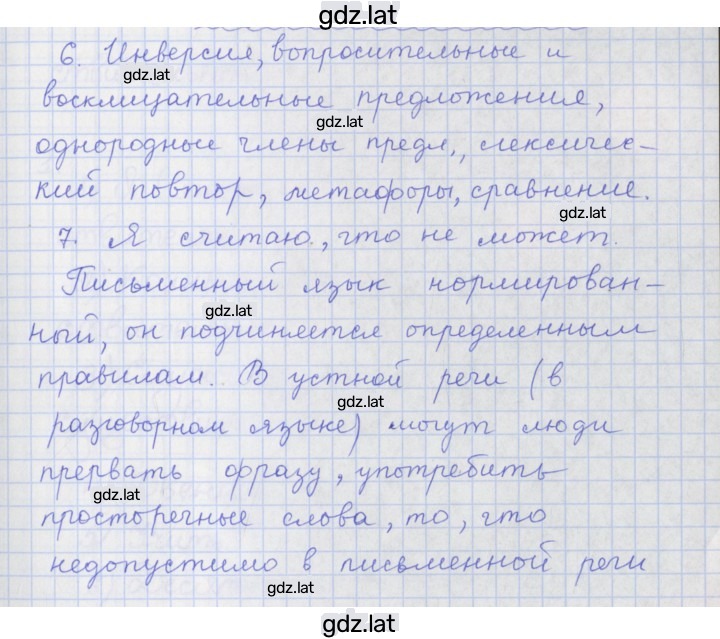 gdz.lat
6. Инверсия, вопросительные и
gdz.lat
восклицательные предложения,
gdz.lat
однородные члены предл., лексичес-
кий повтор, метафоры, сравнение.
gdz.lat
7. Я считаю, что не может.
Письменный язык нормирован-
gdz.lat
ный, он подчиняется определенным
правилам. В устной речи (в
gdz.lat
разговорном языке) могут люди
прервать фразу, употребить
gdz.lat
просторечные слова, то, что
недопустимо в письменной речи
gdz.lat
gdz.lat